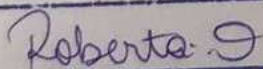 Roberta. I